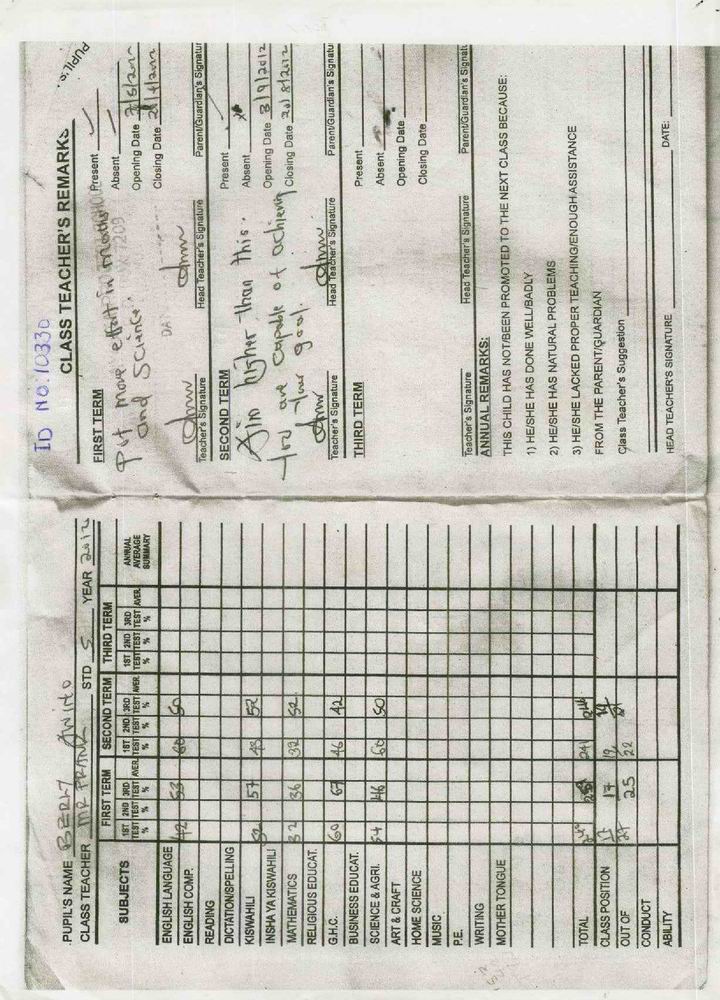 PUPIL'S NAME BERLY AWINO
CLASS TEACHER MR FRANK STD 5 YEAR 2012
SUBJECTS FIRST TERM SECOND TERM THIRD TERM ANNUAL AVERAGE SUMMARY
1ST TEST % 2ND TEST % 3RD TEST % AVER. 1ST TEST % 2ND TEST % 3RD TEST % AVER. 1ST TEST % 2ND TEST % 3RD TEST % AVER.
ENGLISH LANGUAGE 42 53 60 50
ENGLISH COMP.
READING
DICTATION/SPELLING
KISWAHILI 52 57 43 52
INSHA YA KISWAHILI
MATHEMATICS 32 36 32 52
RELIGIOUS EDUCAT.
G.H.C. 60 67 46 42
BUSINESS EDUCAT.
SCIENCE & AGRI. 54 46 60 50
ART & CRAFT
HOME SCIENCE
MUSIC
P.E.
WRITING
MOTHER TONGUE
TOTAL 240 241 246
CLASS POSITION 17 19
OUT OF 27 25 22
CONDUCT
ABILITY
ID NO. 10330
CLASS TEACHER'S REMARKS
PUPIL'S
FIRST TERM
Present
Put more effort in maths
Absent
and Science.
Opening Date
Closing Date
Teacher's Signature Head Teacher's Signature Parent/Guardian's Signatu
SECOND TERM
Present
Aim higher than this.
Absent
You are capable of achieving
Opening Date 3/9/2012
your goal.
Closing Date 20/8/2012
Teacher's Signature Head Teacher's Signature Parent/Guardian's Signatur
THIRD TERM
Present
Absent
Opening Date
Closing Date
Teacher's Signature Head Teacher's Signature Parent/Guardian's Signatu
ANNUAL REMARKS:
THIS CHILD HAS NOT/BEEN PROMOTED TO THE NEXT CLASS BECAUSE:
1) HE/SHE HAS DONE WELL/BADLY
2) HE/SHE HAS NATURAL PROBLEMS
3) HE/SHE LACKED PROPER TEACHING/ENOUGH ASSISTANCE
FROM THE PARENT/GUARDIAN
Class Teacher's Suggestion
HEAD TEACHER'S SIGNATURE DATE: